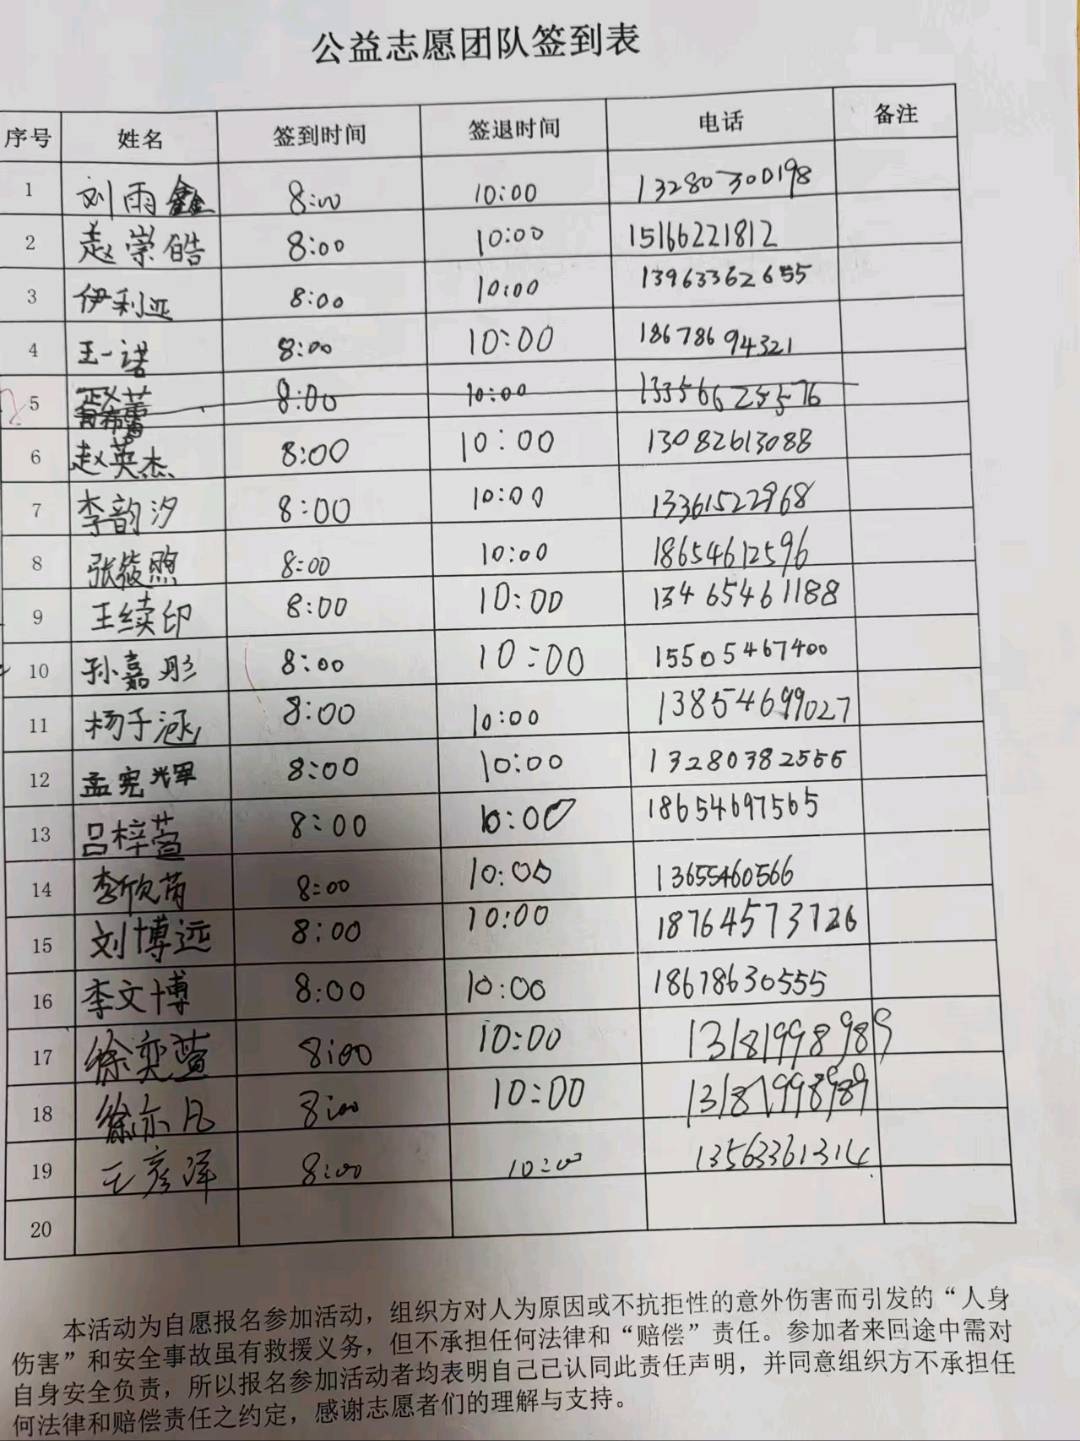 公益志愿团队签到表
序号 姓名 签到时间 签退时间 电话 备注
1 刘雨鑫 8:00 10:00 132807300198
2 赵崇皓 8:00 10:00 15166221812
3 伊利亚 8:00 10:00 13963362655
4 王一诺 8:00 10:00 18678694321
5 8:00 10:00 13356625576
6 赵英杰 8:00 10:00 13082613088
7 李韵汐 8:00 10:00 13361522968
8 张筱煦 8:00 10:00 18654612596
9 王续印 8:00 10:00 13465461188
10 孙嘉彤 8:00 10:00 15505467400
11 杨子涵 8:00 10:00 13854699027
12 孟宪辉 8:00 10:00 13280382555
13 吕梓萱 8:00 10:00 18654697565
14 李欣芮 8:00 10:00 13655460566
15 刘博远 8:00 10:00 18764573726
16 李文博 8:00 10:00 18678630555
17 徐奕萱 8:00 10:00 13181998989
18 徐亦凡 8:00 10:00 13181998989
19 王彦泽 8:00 10:00 13563361314
20
本活动为自愿报名参加活动，组织方对人为原因或不抗拒性的意外伤害而引发的“人身
伤害”和安全事故虽有救援义务，但不承担任何法律和“赔偿”责任。参加者来回途中需对
自身安全负责，所以报名参加活动者均表明自己已认同此责任声明，并同意组织方不承担任
何法律和赔偿责任之约定，感谢志愿者们的理解与支持。